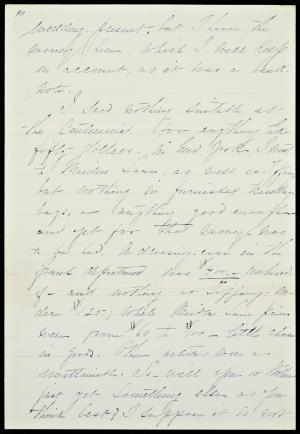 wedding present, but I have the
money here. Which I will keep
on account, as it was a bank
note.
I saw nothing suitable at
the Centennial for anything like
fifty dollars. In New York I went
to as well as Tiffany
but nothing in furnished travelling
bags, or anything good enough
and yet for that money was
to be had. A dressing-case in the
French department was $700.-
- and nothing at Tiffany's un-
der $125-; While
even from $60 to $100 - little
in good. Other articles were as
unattainable. So - will you or Mother
just get something else as you
think best? I suppose it is not